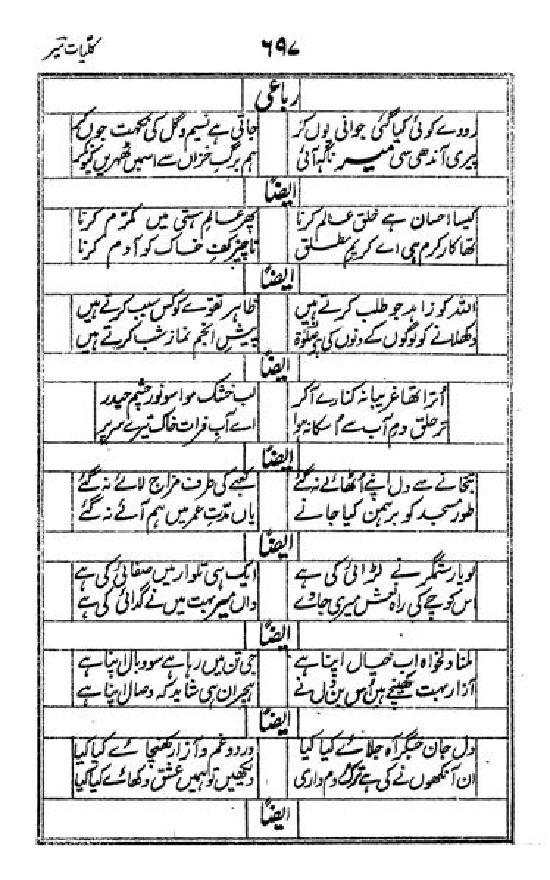 کلیات میر ۶۹۷
رباعی
رووے کوئی کیا گئی جوانی یوں کر جاتی ہے نسیم و گل کی نکہت جوں کر
پیری آندھی سی میر ناگہ آئی ہم برگ خزاں سے اسمیں ٹھہریں کیونکر
ایضاً
کیسا احسان ہے خلق عالم کرنا پھر عالم ہستی میں مکرم کرنا
تھا کار کرم ہی اے کریم مطلق ناچیز کف خاک کو آدم کرنا
ایضاً
اللہ کو زاہد جو طلب کرتے ہیں ظاہر تقوے کو کس سبب کرتے ہیں
دکھلانے کو لوگوں کے دنوں کی صلوٰۃ پیش انجم نماز شب کرتے ہیں
ایضاً
اُترا تھا غریبانہ کنارے آکر لب خشک موا سو نور چشم حیدر
تر حلق دم آب سے اُسکا نہ ہوا اے آب فرات خاک تیرے سر پر
ایضاً
بتخانے سے دل اپنے اُٹھائے نہ گئے کعبے کی طرف مزاج لائے نہ گئے
طور مسجد کو برہمن کیا جانے یاں مدت عمر میں ہم آئے نہ گئے
ایضاً
لو یار ستمگر نے لڑائی کی ہے ایک ہی تلوار میں صفائی کی ہے
اس کوچے کی راہ نعش میری جاوے واں میر بہت میں نے گدائی کی ہے
ایضاً
ملنا دلخواہ اب خیال اپنا ہے جی تن میں رہا ہے سو وبال اپنا ہے
آزار بہت کھینچے ہیں اُس بن دل نے ہجراں ہی شاید کہ وصال اپنا ہے
ایضاً
دل جان جگر آہ جلائے کیا کیا درد و غم و آزار کھنچائے کیا کیا
ان آنکھوں نے کی ہے ترک مردم داری دیکھیں تو ہمیں عشق دکھائے کیا کیا
ایضاً